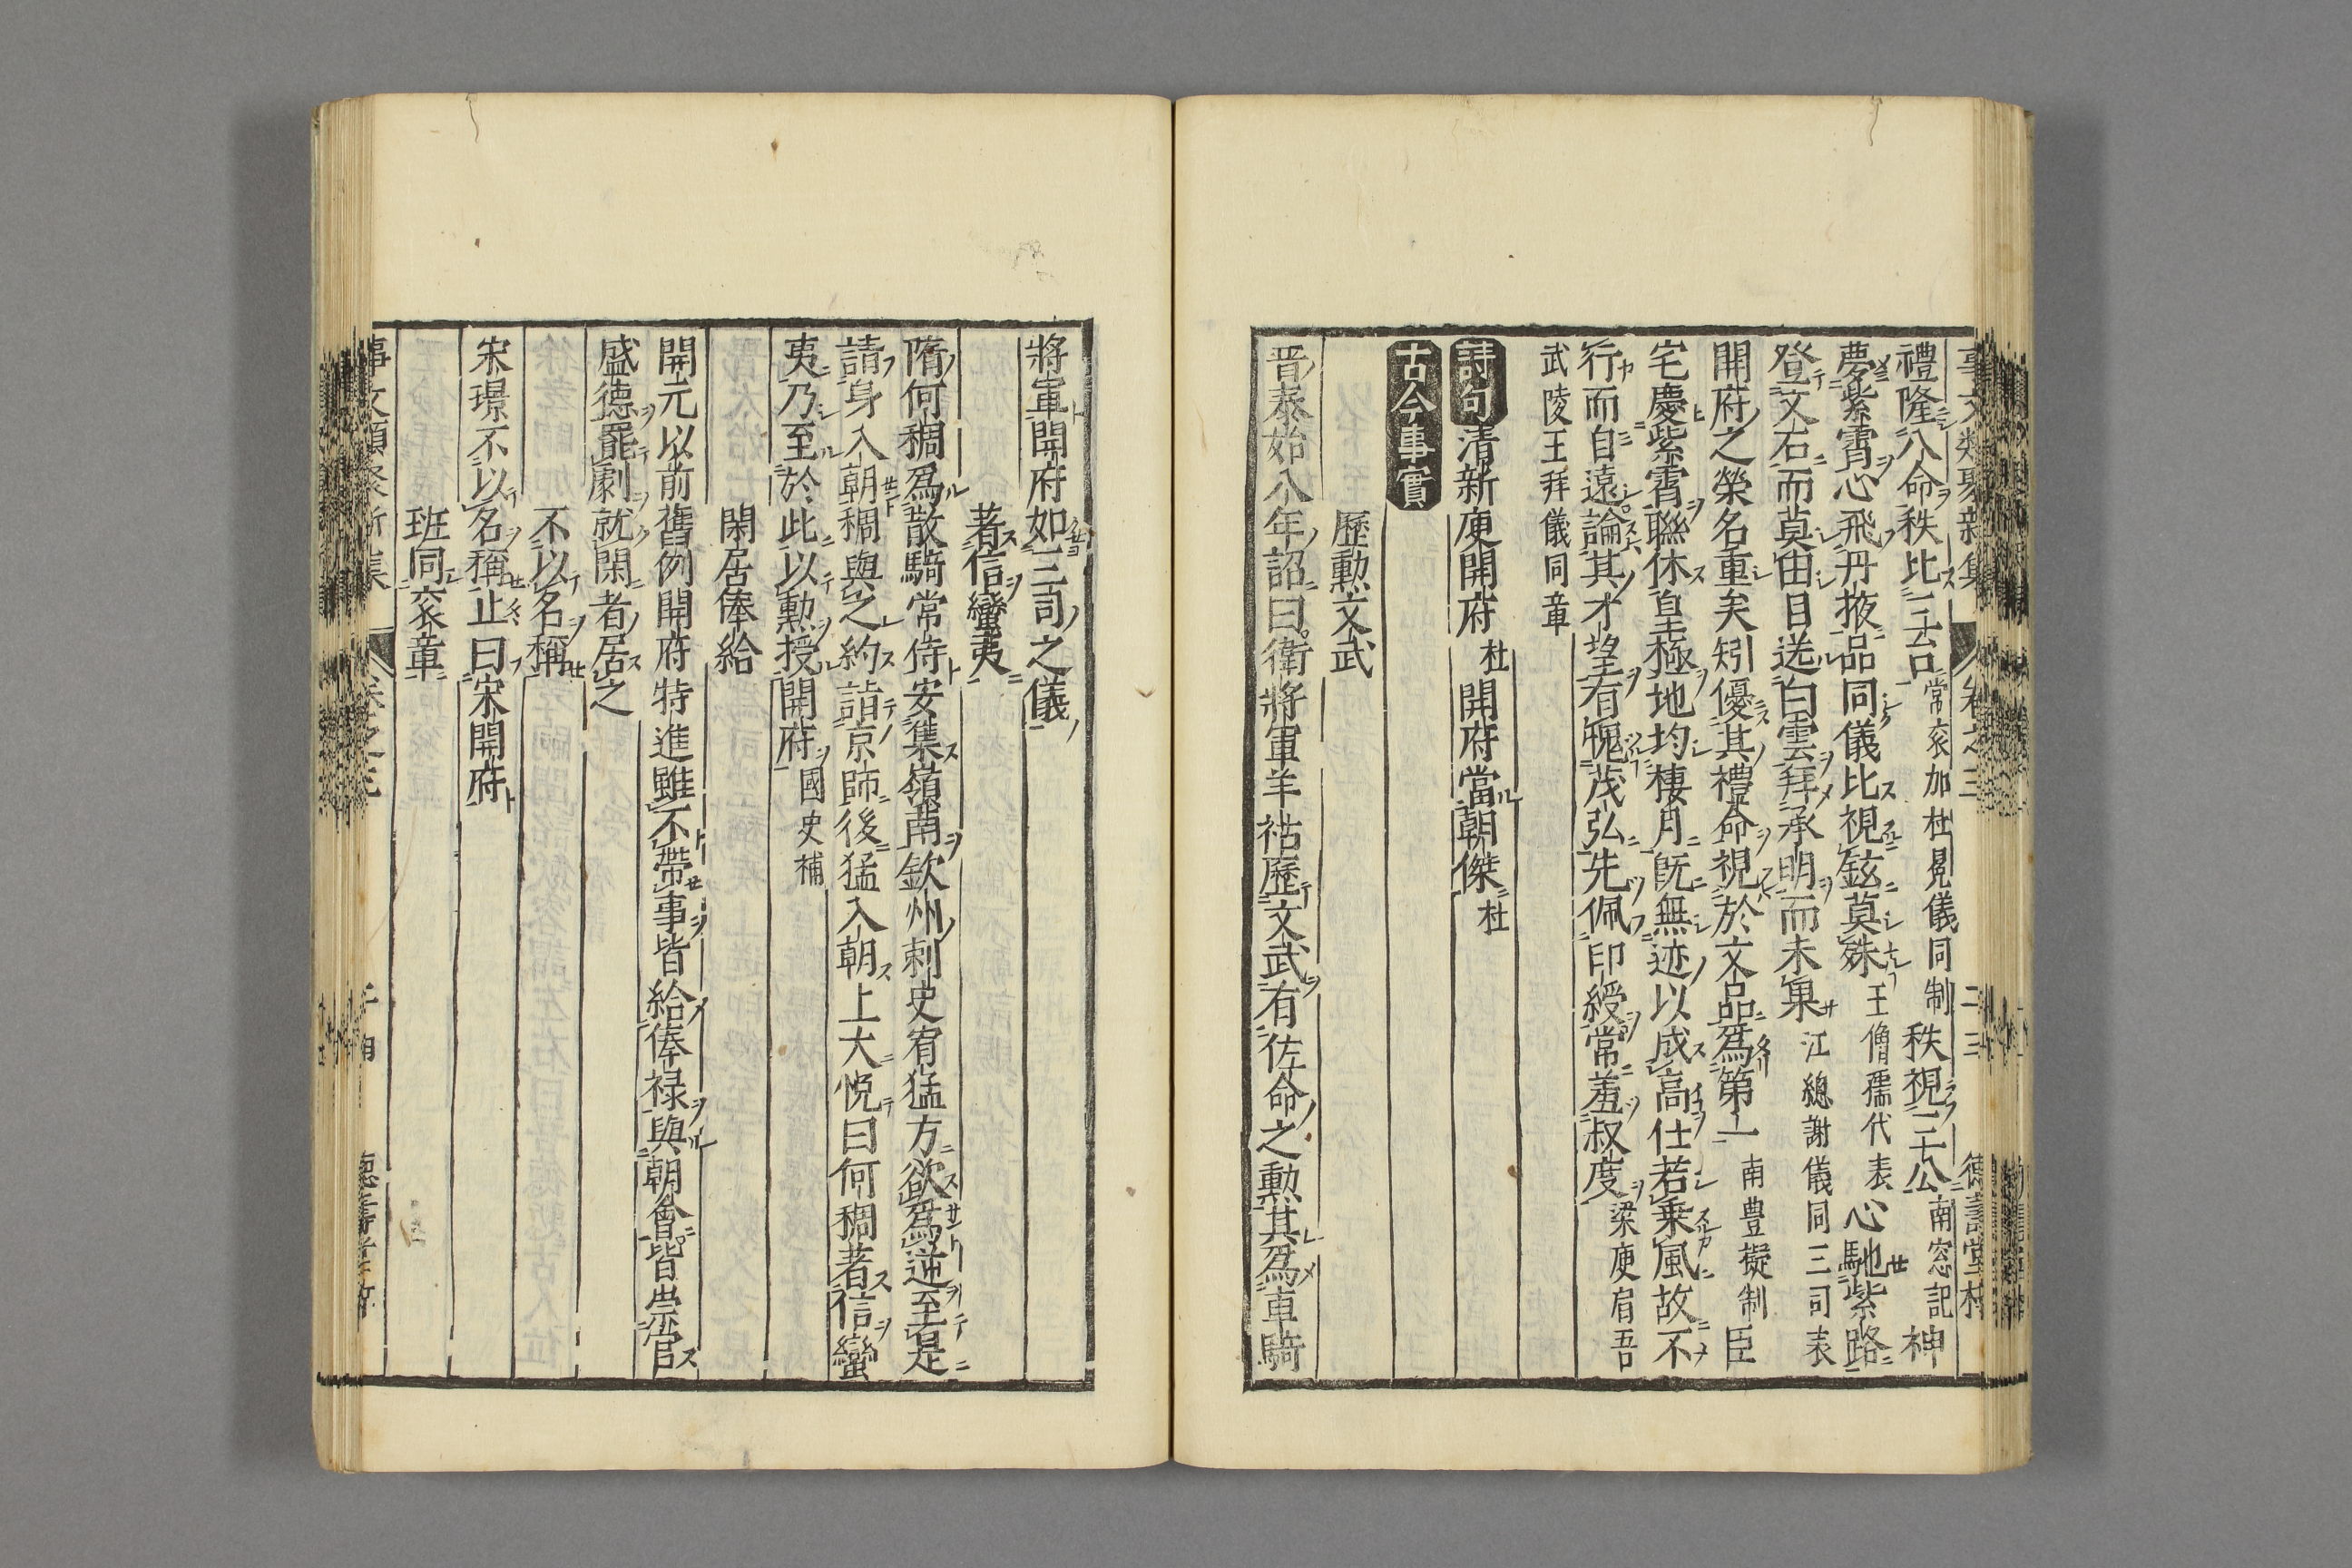 禮隆八命秩比三台常袞加杜晃儀同制秩視三公南窓記神
夢紫霄心飛丹掖品同儀比視鉉莫殊王僧孺代表心馳紫路
登文石而莫由目送白雲拜承明而未果江總謝儀同三司表
開府之榮名重矣矧優其禮命視於文品爲第一南豊擬制臣
宅慶紫霄聯休皇極地均棲月旣無迹以成高仕若乗風故不
行而自遠論其才望有愧茂弘先佩印綬常羞叔度梁庾肩吾
武陵王拜儀同章
詩句清新庾開府杜開府當朝傑杜
古今事實
歷勲文武
晋泰始八年詔曰衛將軍羊祜歷文武有佐命之勲其爲車騎
將軍開府如三司之儀
著信蠻夷
隋何稠爲散騎常侍安集嶺南欽州刺史甯猛方欲爲逆至是
請身入朝稠與之約詣京師後猛入朝上大悦曰何稠著信蠻
夷乃至於此以勲授開府國史補
閑居俸給
開元以前舊例開府特進雖不帶事皆給俸禄與朝會皆崇官
盛德罷劇就閑者居之
不以名稱
宋璟不以名稱止曰宋開府
班同袞章